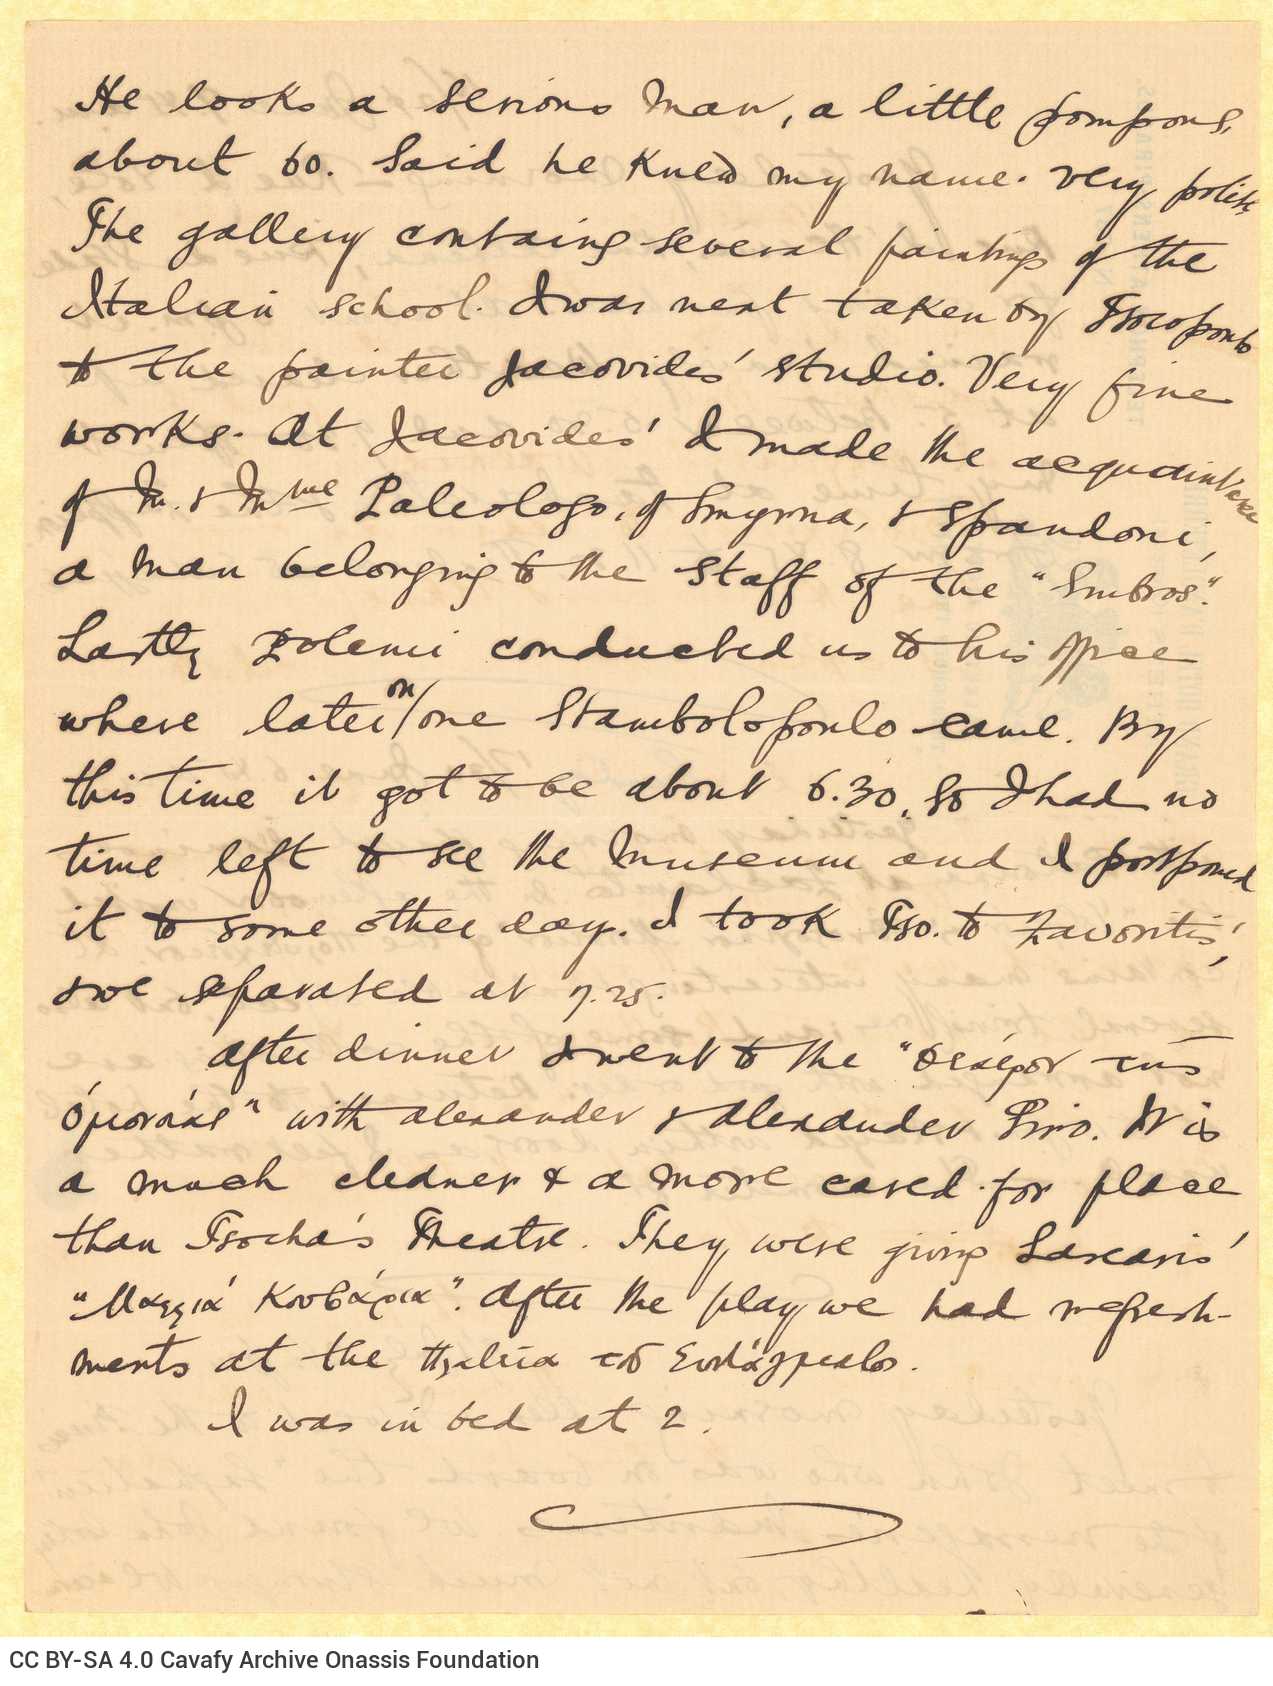 He looks a serious man, a little pompous,
about 60. Said he knew my name. Very polite.
The gallery contains several paintings of the
Italian school. I was next taken by Tsocopoulo
to the painter Jacovides' studio. Very fine
works. At Jacovides' I made the acquaintance
of M. & Mme Paleologo, of Smyrna, & Spandoni,
a man belonging to the staff of the "Embros".
Lastly Polemi conducted us to his office
where later on/ one Stambolopoulo came. By
this time it got to be about 6.30, so I had no
time left to see the Museum and I postponed
it to some other day. I took Tso. to Zavoritis',
& we separated at 7.25.
After dinner I went to the "Θέατρον τῆς
Ὁμονοίας" with Alexander & Alexander Siro. It is
a much cleaner & a more cared-for place
than Tsocha's Theatre. They were giving Lascaris'
"Μαλλιά Κουβάρια". After the play we had refresh-
ments at the
I was in bed at 2.
CC BY-SA 4.0 Cavafy Archive Onassis Foundation